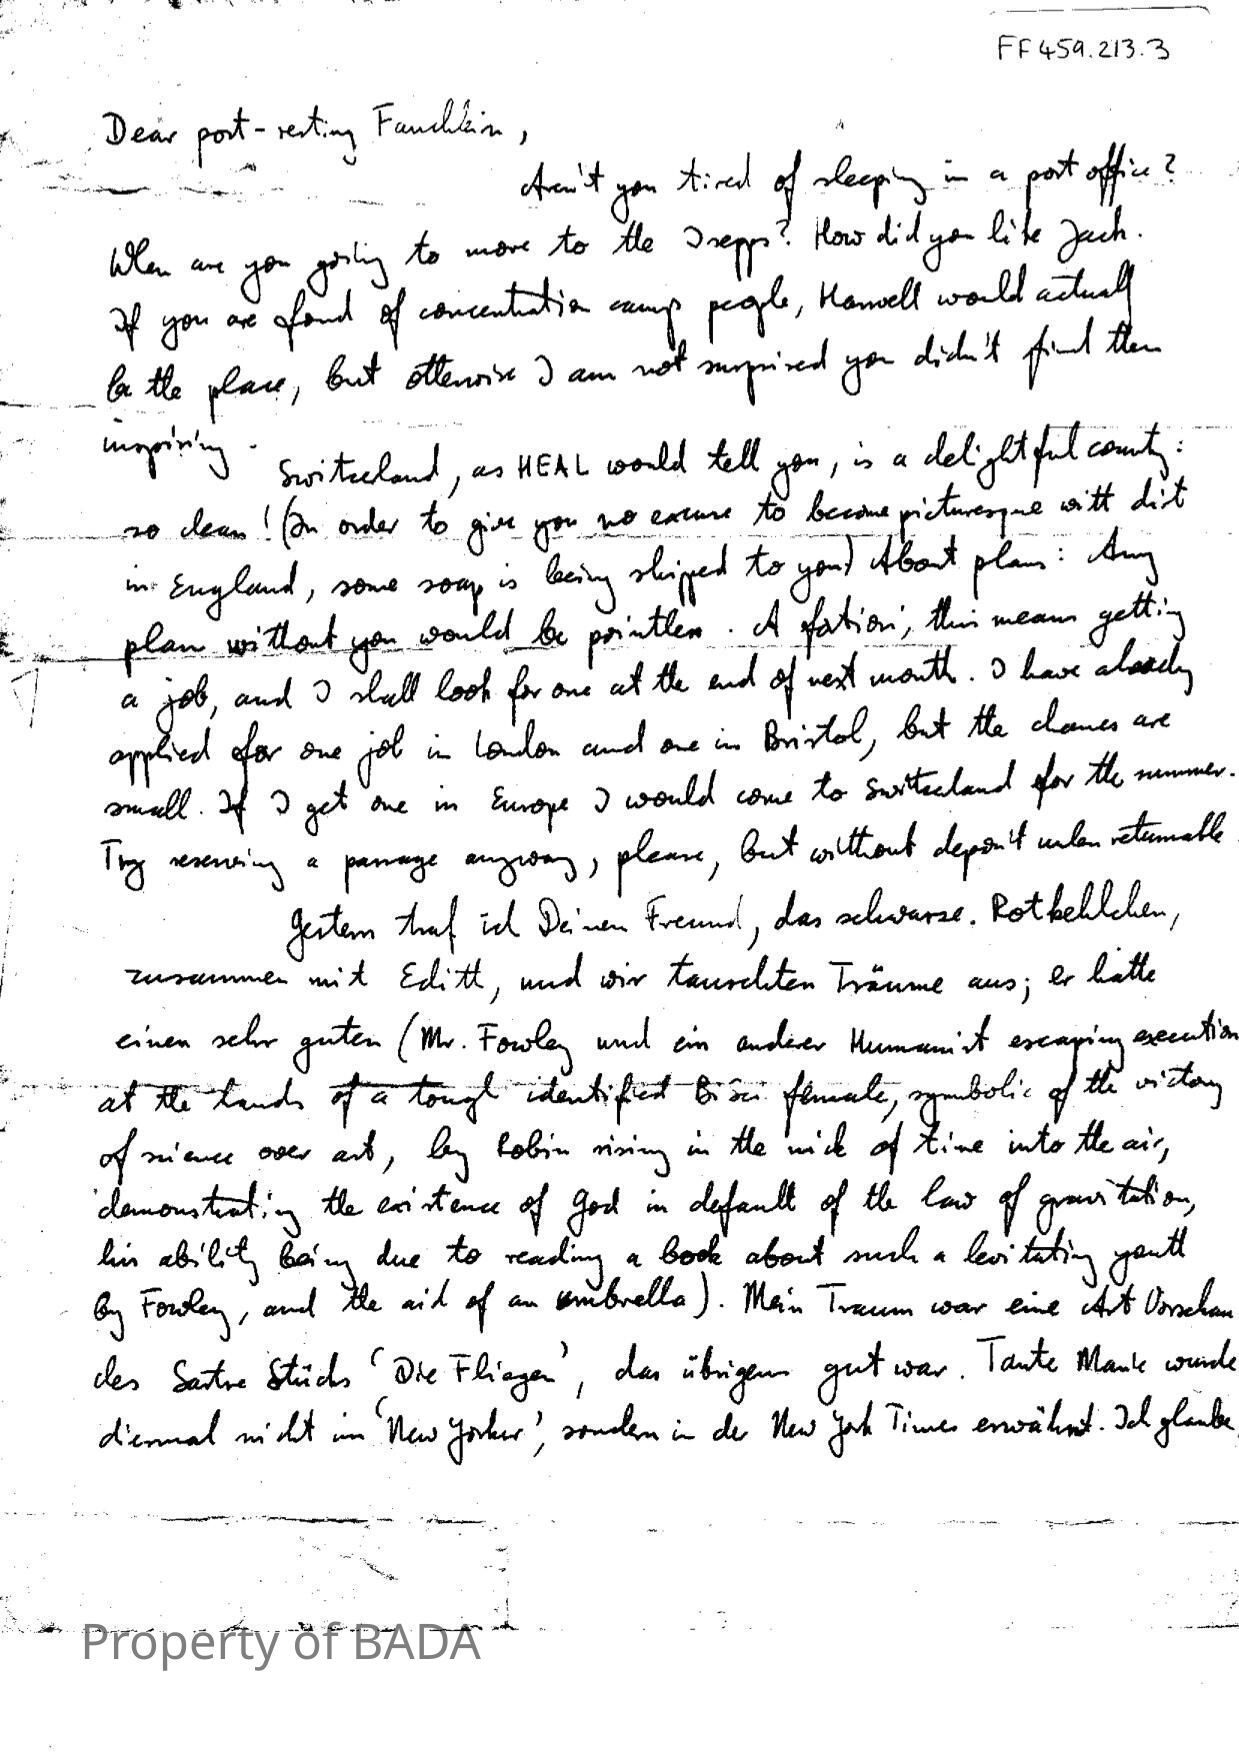 FF459.213.3
Dear post-resting Fauchkin,
Aren't you tired of sleeping in a post office?
When are you going to move to the Isepps? How did you like Jack.
If you are fond of concentration camp people, Hanwell would actually
be the place, but otherwise I am not surprised you didn't find them
inspiring.
Switzerland, as HEAL would tell you, is a delightful country:
so clean! (In order to give you no excuse to become picturesque with dirt
in England, some soap is being shipped to you) About plans: Any
plan without you would be pointless. A fortiori, this means getting
a job, and I shall look for one at the end of next month. I have already
applied for one job in London and one in Bristol, but the chances are
small. If I get one in Europe I would come to Switzerland for the summer.
Try reserving a passage anyway, please, but without deposit unless returnable
Gestern traf ich Deinen Freund, das schwarze Rotkehlchen,
zusammen mit Edith, und wir tauschten Träume aus; er hatte
einen sehr guten (Mr. Fowley und ein anderer Humanist escaping execution
at the hands of a tough identified female, symbolic of the victory
of science over art, by Robin rising in the nick of time into the air,
demonstrating the existence of God in default of the law of gravitation,
his ability being due to reading a book about such a levitating youth
by Fowley, and the aid of an umbrella). Mein Traum war eine Art Vorschau
des Sartre Stücks 'Die Fliegen', das übrigens gut war. Tante Marie wurde
diesmal nicht im 'New Yorker', sondern in der New York Times erwähnt. Ich glaube,
Property of BADA